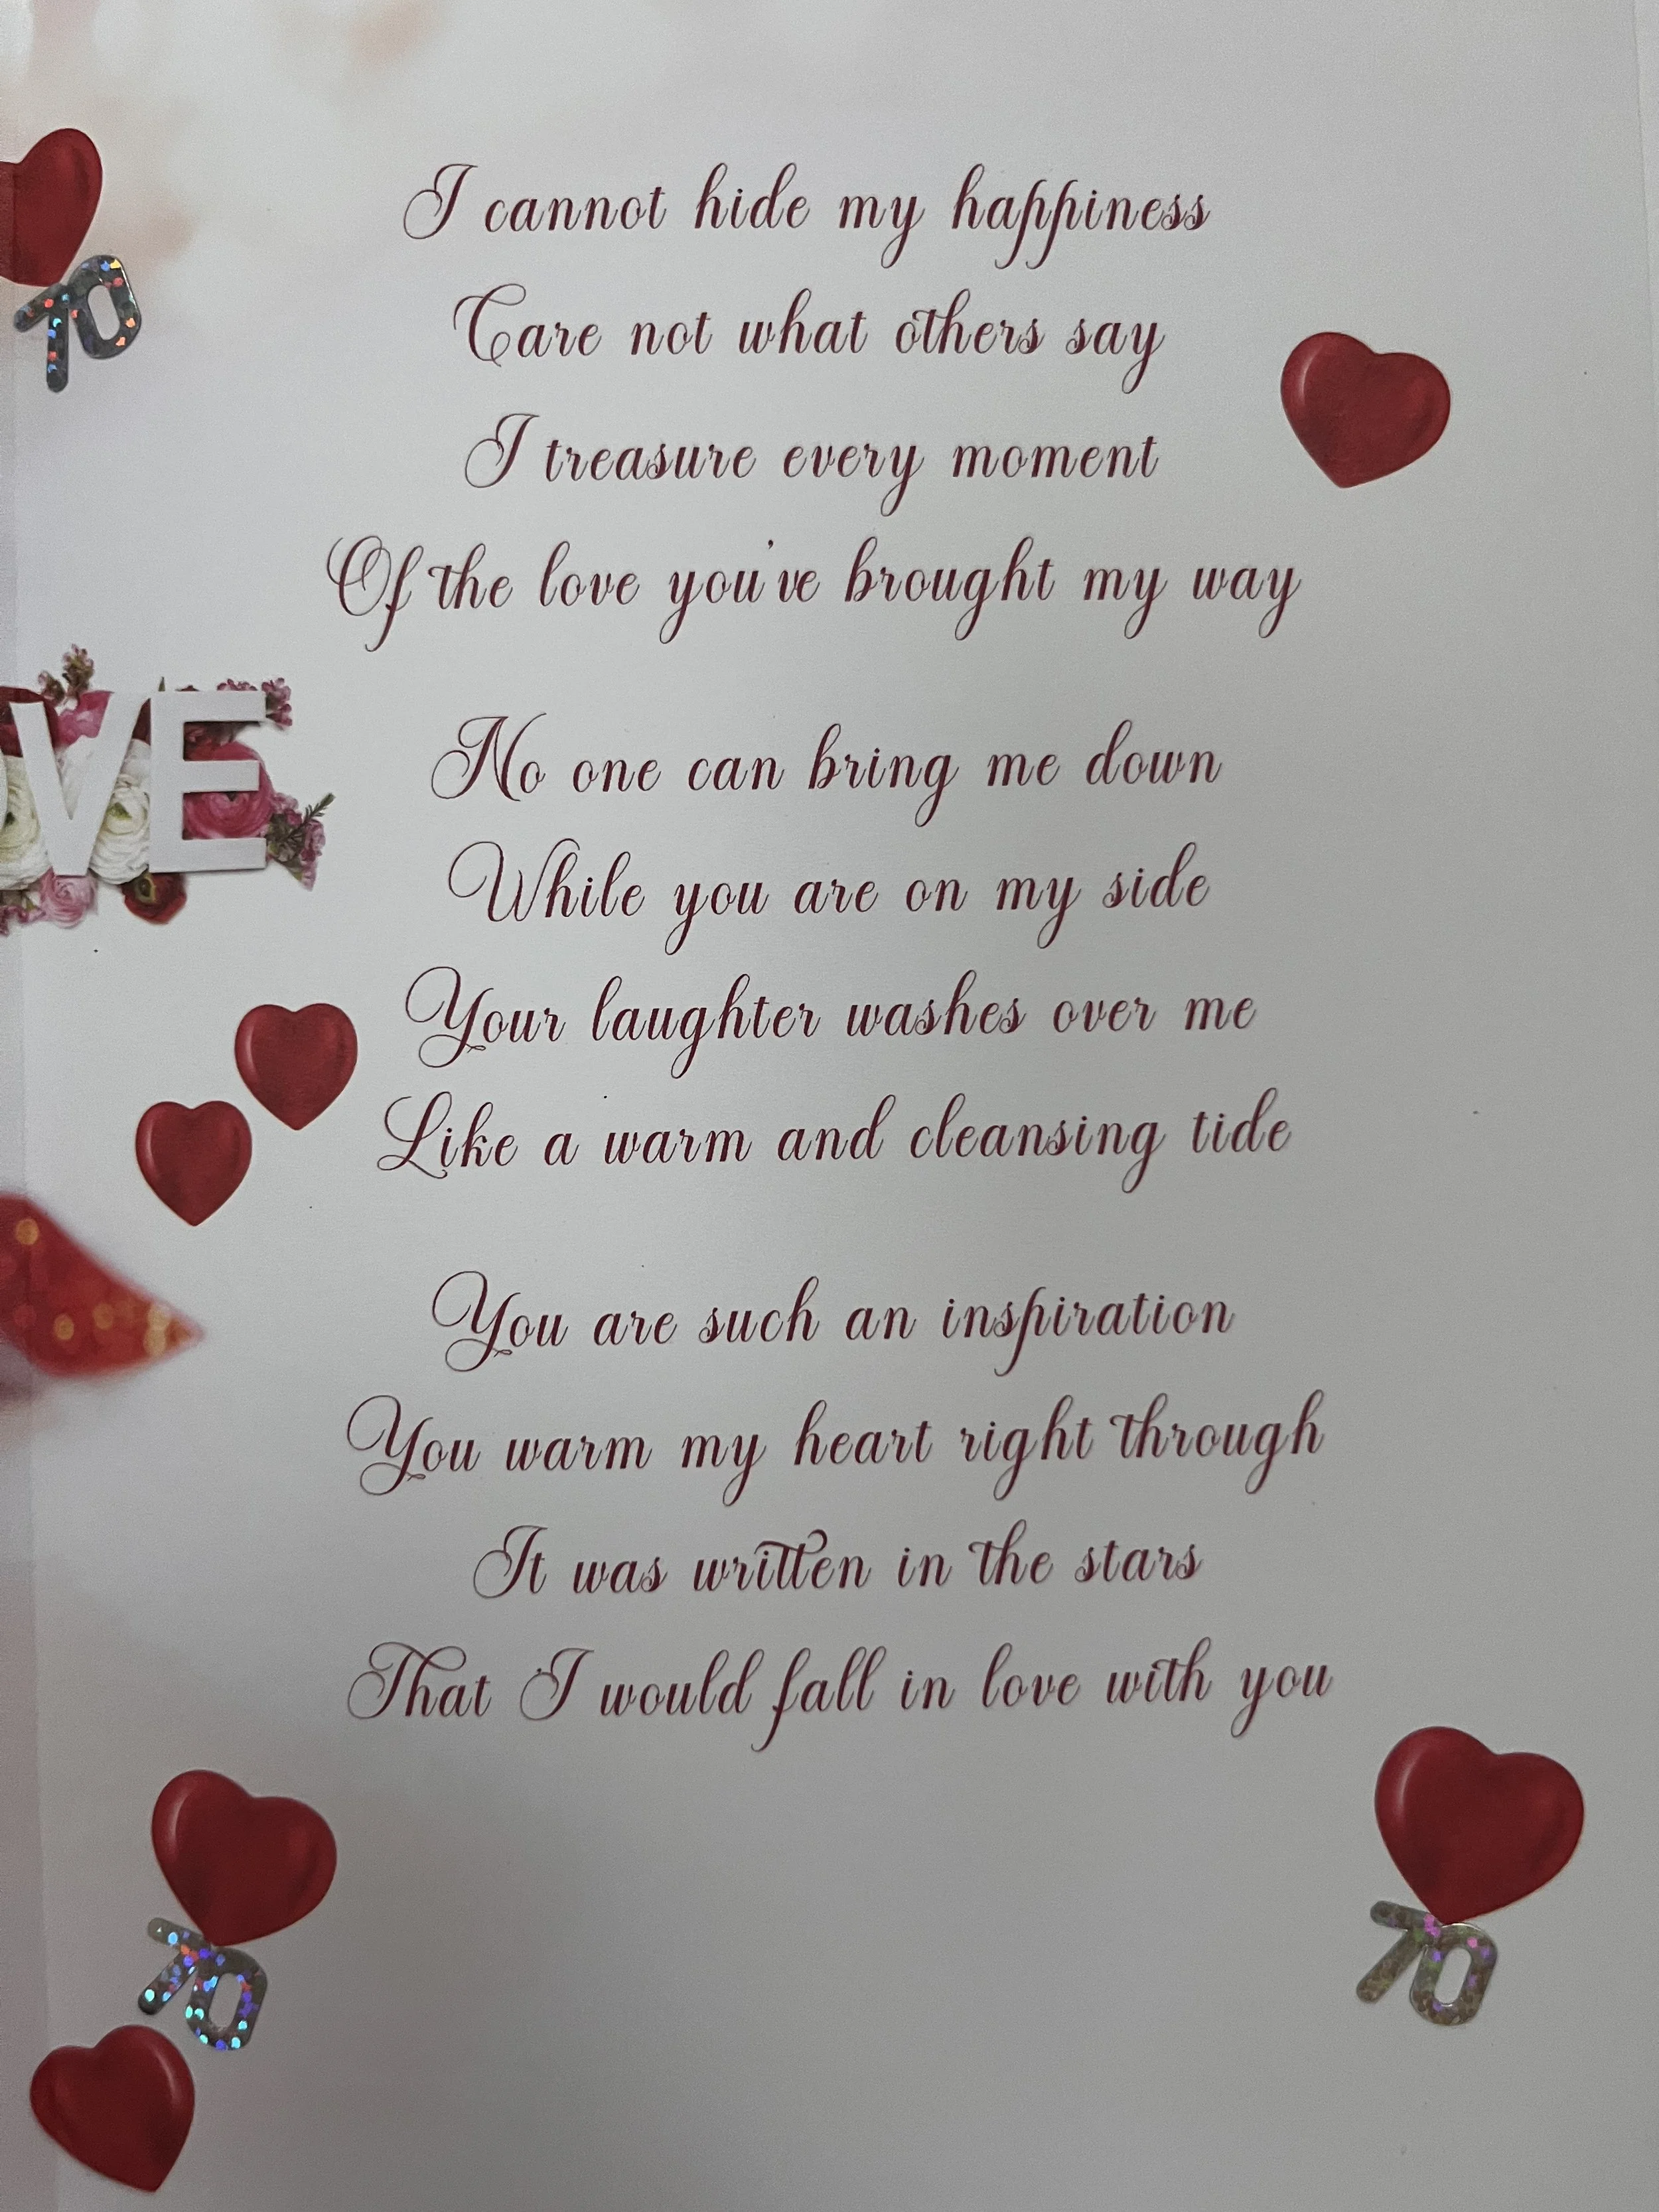 I cannot hide my happiness
Care not what others say
I treasure every moment
Of the love you've brought my way
No one can bring me down
While you are on my side
Your laughter washes over me
Like a warm and cleansing tide
You are such an inspiration
You warm my heart right through
It was written in the stars
That I would fall in love with you
70
OVE
70
70